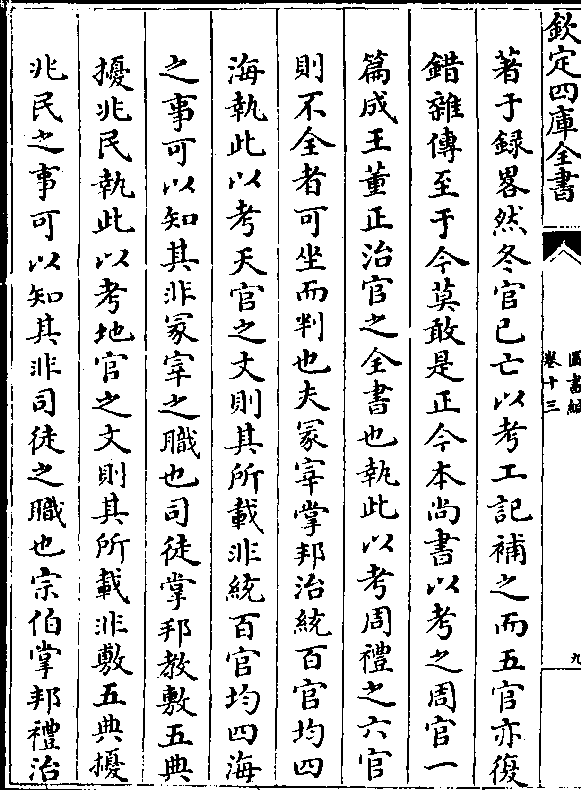 欽定四庫全書
圖書編
卷十三
九
著于録畧然冬官已亡以考工記補之而五官亦復
錯雜傳至于今莫敢是正今本尚書以考之周官一
篇成王董正治官之全書也執此以考周禮之六官
則不全者可坐而判也夫冢宰掌邦治統百官均四
海執此以考天官之文則其所載非統百官均四海
之事可以知其非冢宰之職也司徒掌邦教敷五典
擾兆民執此以考地官之文則其所載非敷五典擾
兆民之事可以知其非司徒之職也宗伯掌邦禮治